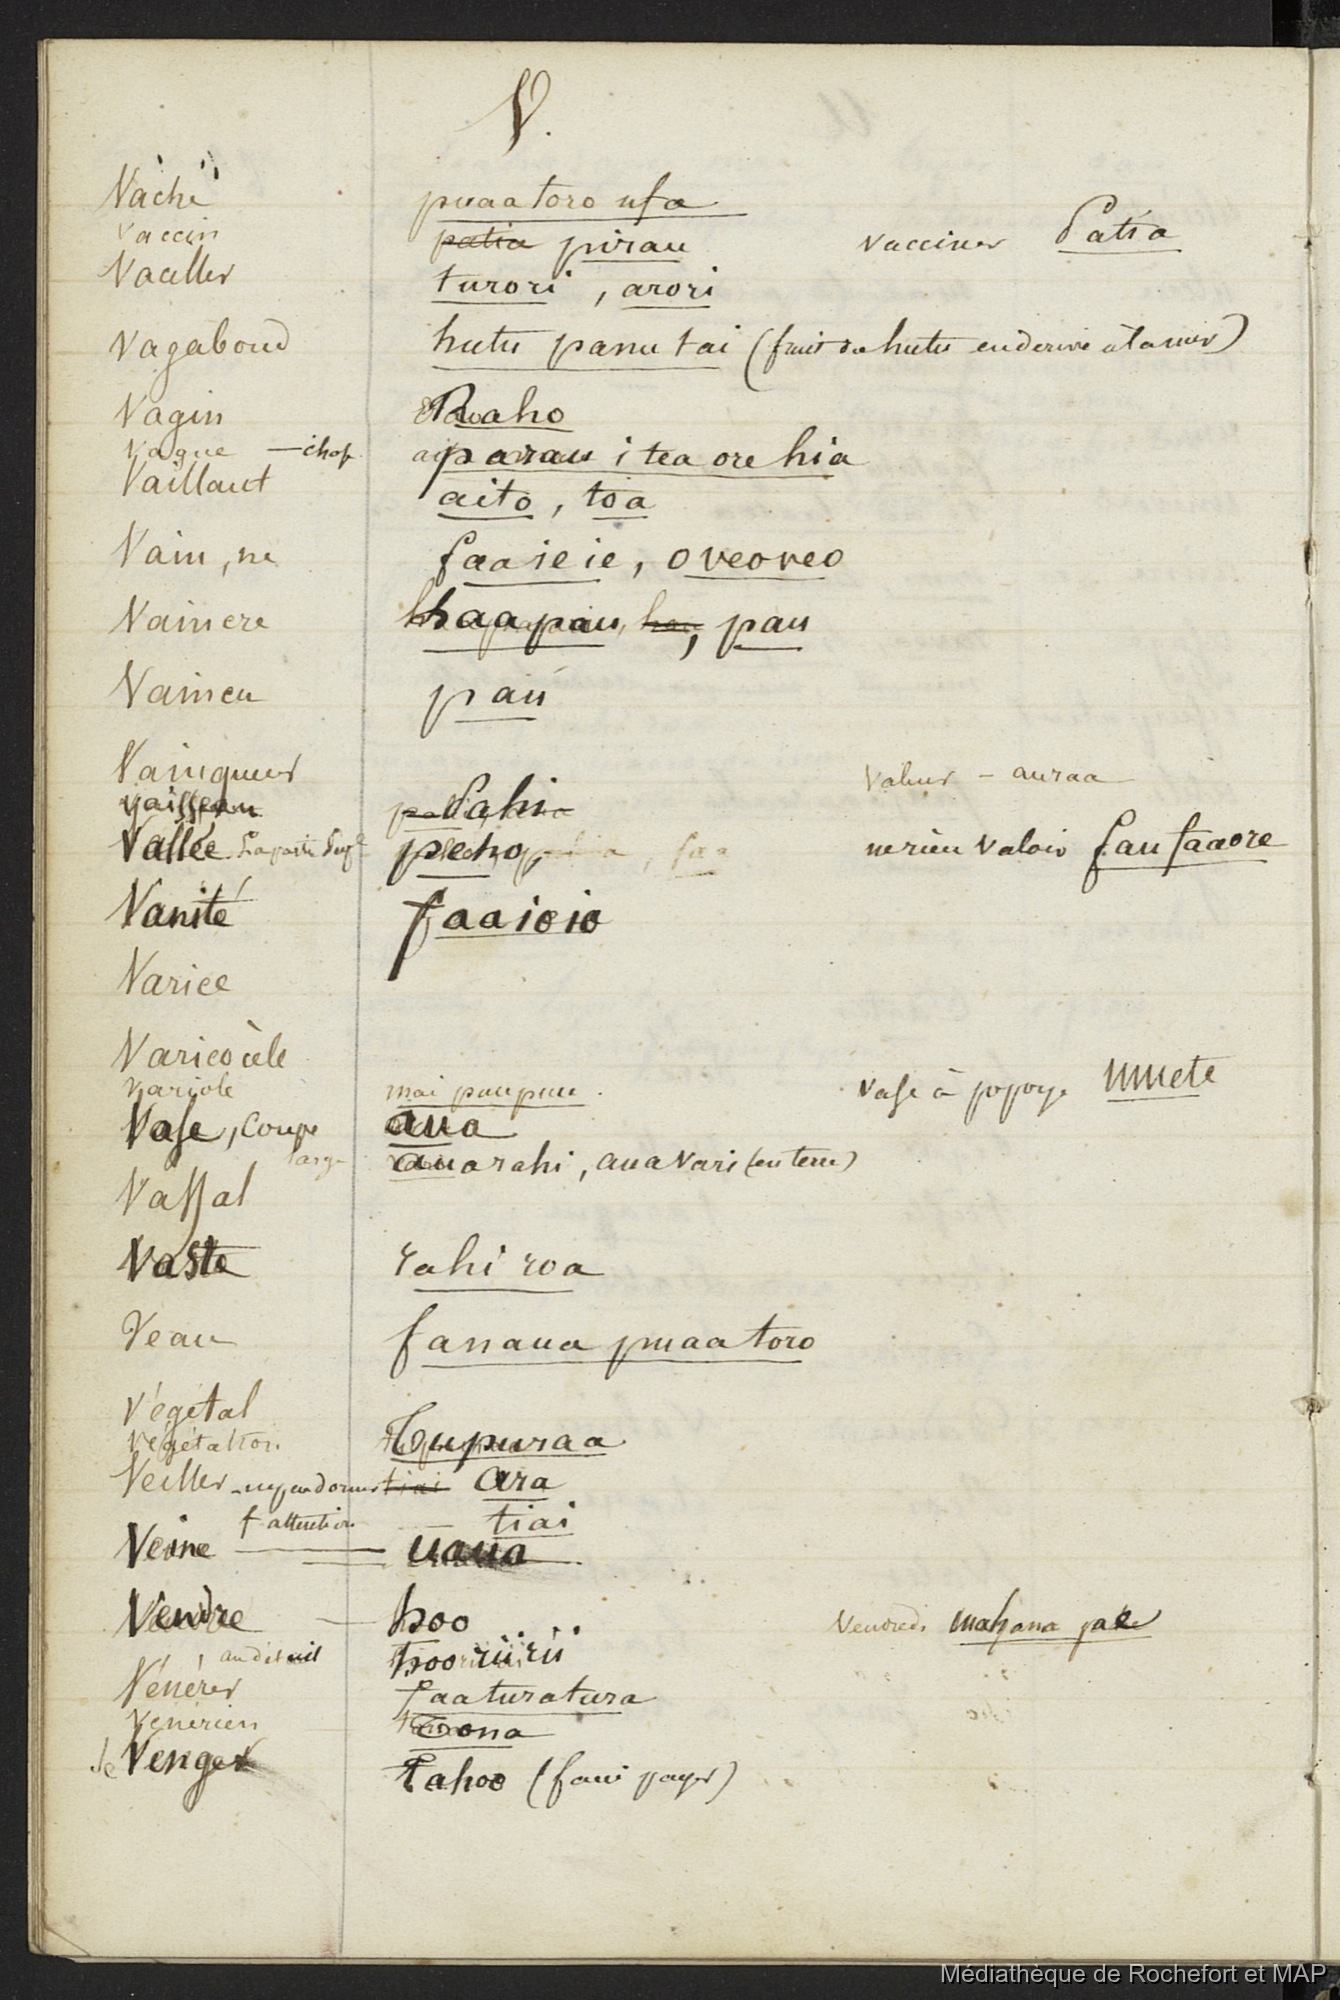 V.
Vache puaatoro ufa
Vaccin patia pirau vacciner Patia
Vaciller turori, arori
Vagabond hutu panu tai (fruit du hutu en derive à la mer)
Vagin Raho
Vague — chose parau itea ore hia
Vaillant aito, toa
Vain, ne faaieie, oveoveo
Vaincre haapau, pau
Vaincu pau
Vainqueur Valeur – auraa
Vaisseau Pahi
Vallée peho, faa ne rien valoir faufaaore
Vanité faaieie
Varice
Varicocèle
Variole mai puupuu. Vase à popoye Umete
Vase, Coupe aua
large aua rahi, aua vari (en terre)
Vassal
Vaste rahi roa
Veau fanaua puaatoro
Végétal
Végétation Tupuraa
Veiller - ne pas dormir tiai ara
f. attention — tiai
Veine uaua
Vendre — hoo Vendredi mahana pae
au détail hoo rii rii
Vénérer faaturatura
Vénérien Tona
Se Venger Tahoo (faire payer)
Médiathèque de Rochefort et MAP